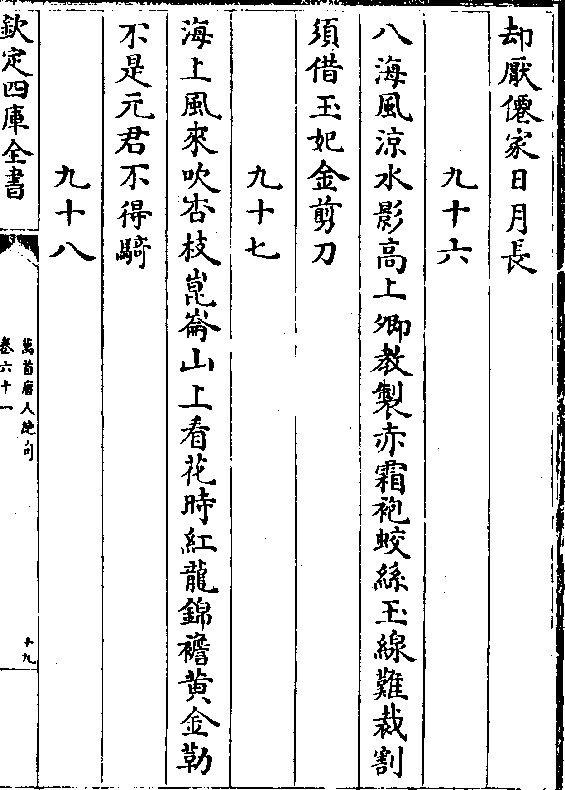 却厭僊家日月長
九十六
八海風涼水影高上卿教製赤霜袍蛟絲玉線難裁割
須借玉妃金剪刀
九十七
海上風來吹杏枝崑崙山上看花時紅龍錦襜黄金勒
不是元君不得騎
九十八
欽定四庫全書
萬首唐人絶句
卷六十一
十九